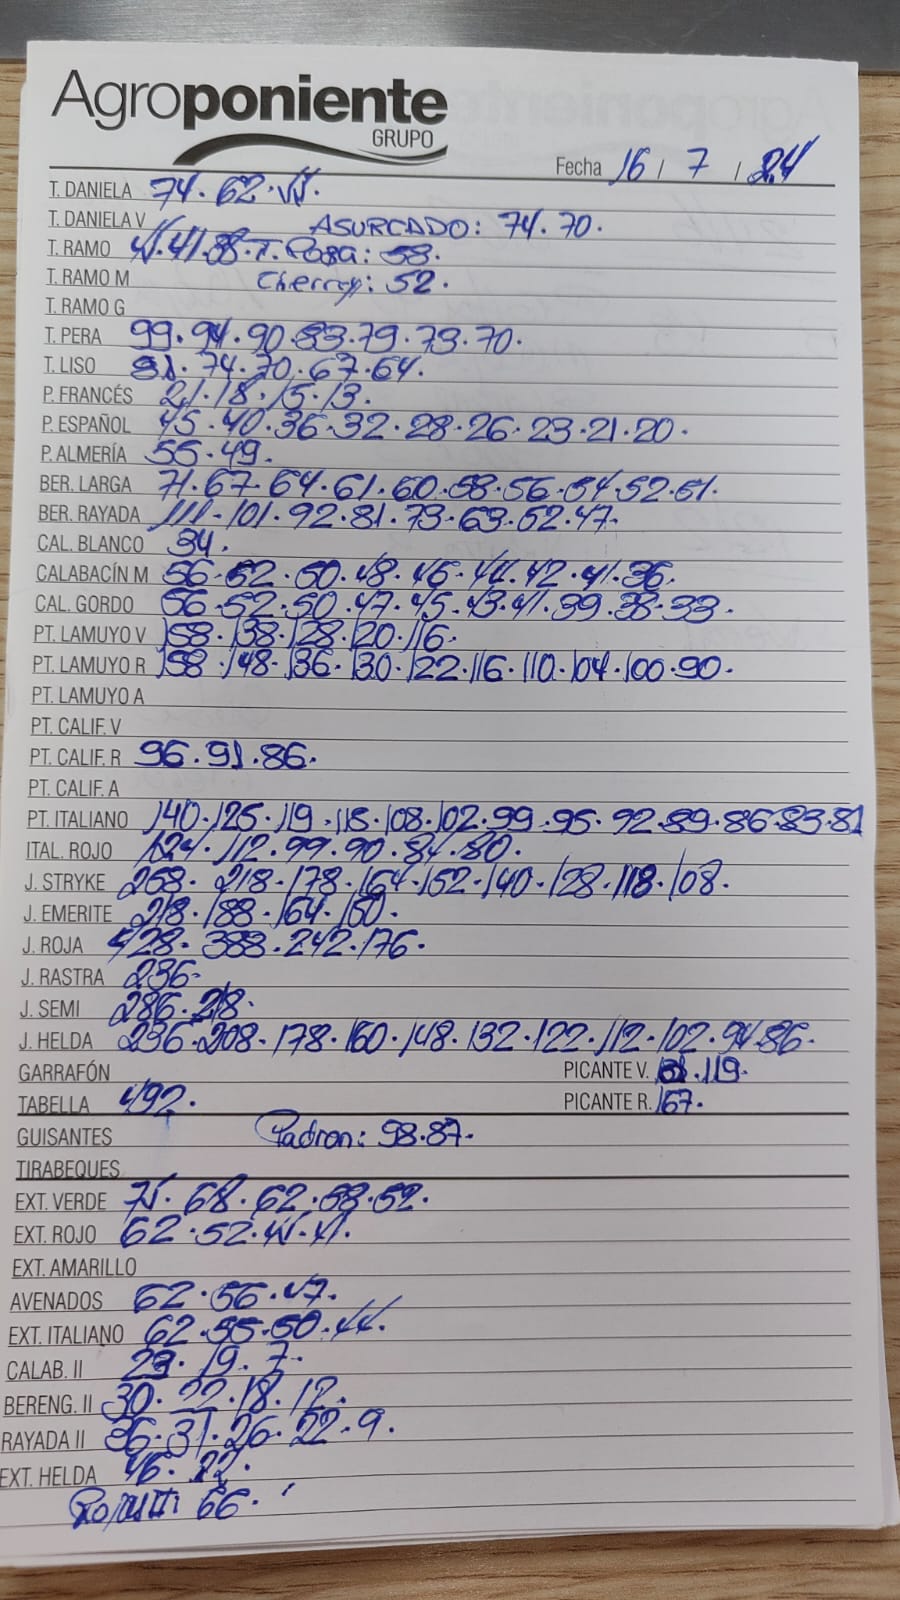 Agroponiente
GRUPO
Fecha 16 / 7 / 24
T. DANIELA 74. 62.
T. DANIELA V ASURCADO: 74.70.
T. RAMO 41.38. T. Rosa: 58.
T. RAMO M Cherry: 52.
T. RAMO G
T. PERA 99.94.90.83.79.73.70.
T. LISO 81.74.70.67.64.
P. FRANCÉS 21.18.15.13.
P. ESPAÑOL 45.40.36.32.28.26.23.21.20.
P. ALMERÍA 55.49.
BER. LARGA 71.67.64.61.60.58.56.54.52.51.
BER. RAYADA 111.101.92.81.73.63.52.47.
CAL. BLANCO 34.
CALABACÍN M 56.52.50.48.46.44.42.41.36.
CAL. GORDO 56.52.50.47.45.43.41.39.38.33.
PT. LAMUYO V 158.138.128.120.116.
PT. LAMUYO R 158.148.136.130.122.116.110.104.100.90.
PT. LAMUYO A
PT. CALIF. V
PT. CALIF. R 96.91.86.
PT. CALIF. A
PT. ITALIANO 140.125.119.115.108.102.99.95.92.89.86.83.81
ITAL. ROJO 124.112.99.90.84.80.
J. STRYKE 268.218.178.164.152.140.128.118.108.
J. EMERITE 218.188.164.150.
J. ROJA 428.388.242.176.
J. RASTRA 236.
J. SEMI 286.218.
J. HELDA 236.208.178.160.148.132.122.112.102.94.86.
GARRAFÓN PICANTE V. .119.
TABELLA 492. PICANTE R. 167.
GUISANTES Padron: 98.87.
TIRABEQUES
EXT. VERDE 75.68.62.58.52.
EXT. ROJO 62.52.45.41.
EXT. AMARILLO
AVENADOS 62.56.47.
EXT. ITALIANO 62.55.50.44.
CALAB. II 23.19.7.
BERENG. II 30.22.18.12.
RAYADA II 36.31.26.22.9.
EXT. HELDA 46.22.
66.